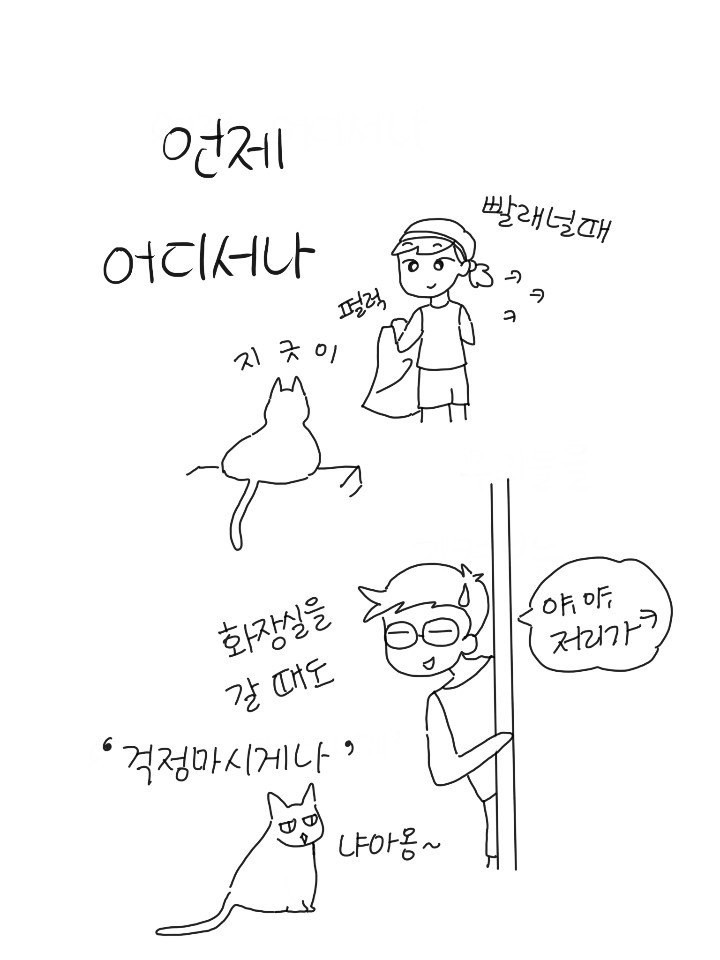 언제
어디서나
빨래널때
펄럭
지긋이
화장실을
갈 때도
야, 야,
저리가
'걱정마시게나'
냐아옹~